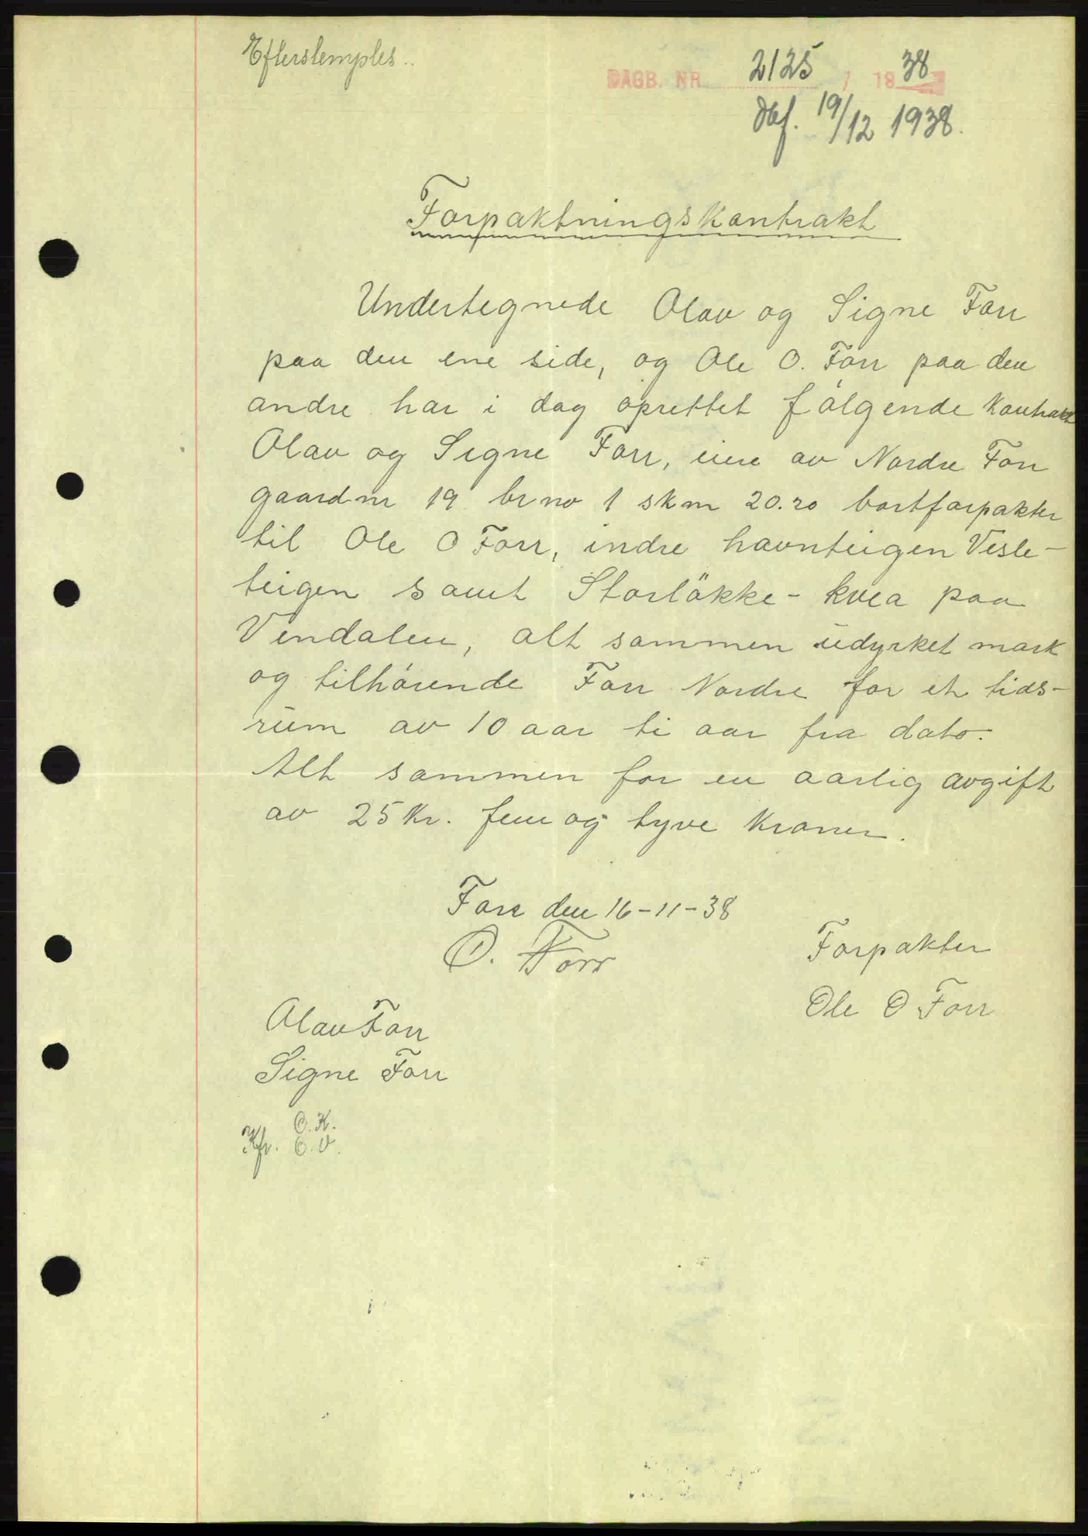 Efterstemples..
DAGB. NR 2125 / 1938
dbf. 19/12 1938.
Forpaktningskontrakt
Undertegnede Olav og Signe Forr
paa den ene side, og Ole O. Forr paa den
andre har i dag oprettet følgende kontrakt
Olav og Signe Forr, eiere av Nordre Forr
gaardnr 19 brno 1 skm 20.20 bortforpakter
til Ole O Forr, indre havnteigen Vesle-
teigen samt Storløkke-kvea paa
Vendalen, alt sammen udyrket mark
og tilhørende Forr Nordre for et tids-
rum av 10 aar ti aar fra dato.
Alt sammen for en aarlig avgift
av 25 Kr. fem og tyve Kroner.
Forr den 16-11-38
O. Forr
Forpakter
Ole O Forr
Olav Forr
Signe Forr
O.K.
Kfr. O.V.